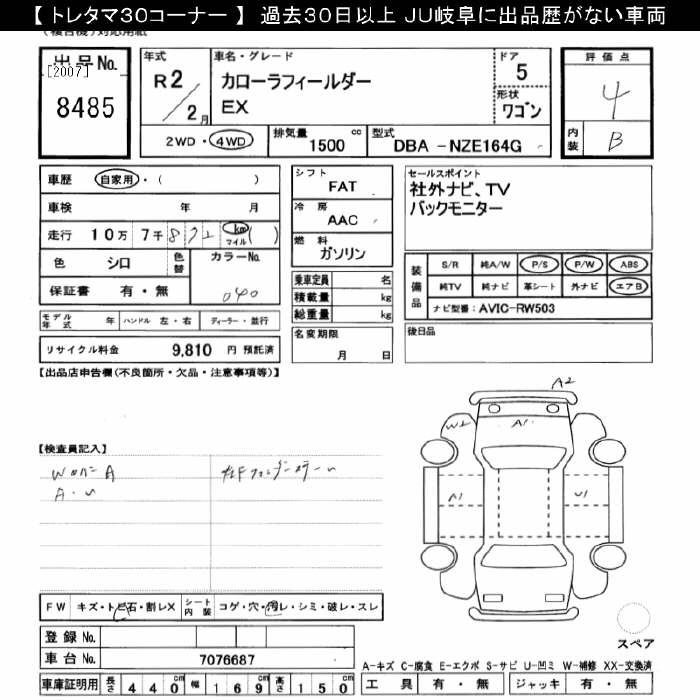 【 トレタマ30コーナー 】 過去30日以上 JU岐阜に出品歴がない車両
(複合機)対応用紙
出品No.
[2007]
8485
年式
R2/2月
車名・グレード
カローラフィールダー
EX
ドア
5
形状
ワゴン
2WD・4WD
排気量
1500 cc
型式
DBA -NZE164G
評価点
4
内装
B
車歴 自家用・( )
車検 年 月
走行 10万 7千 km マイル ( )
色 シロ 色替 カラーNo.
保証書 有・無 040
モデル年式 年 ハンドル 左・右 ディーラー・並行
リサイクル料金 9,810 円 預託済
シフト
FAT
冷房
AAC
燃料
ガソリン
乗車定員 名
積載量 kg
総重量 kg
名変期限
月 日
セールスポイント
社外ナビ、TV
バックモニター
装備品
S/R 純A/W P/S P/W ABS
純TV 純ナビ 革シート 外ナビ エアB
ナビ型番: AVIC-RW503
後日品
【出品店申告欄(不良箇所・欠品・注意事項等)】
【検査員記入】
A2
W2
A1
A1
U1
FW キズ・トビ石・割レX シート内装 コゲ・穴・汚レ・シミ・破レ・スレ
登録 No.
車台 No. 7076687
車庫証明用 長さ 440 cm 幅 169 cm 高さ 150 cm
スペア
A-キズ C-腐食 E-エクボ S-サビ U-凹ミ W-補修 XX-交換済
工具 有・無 ジャッキ 有・無